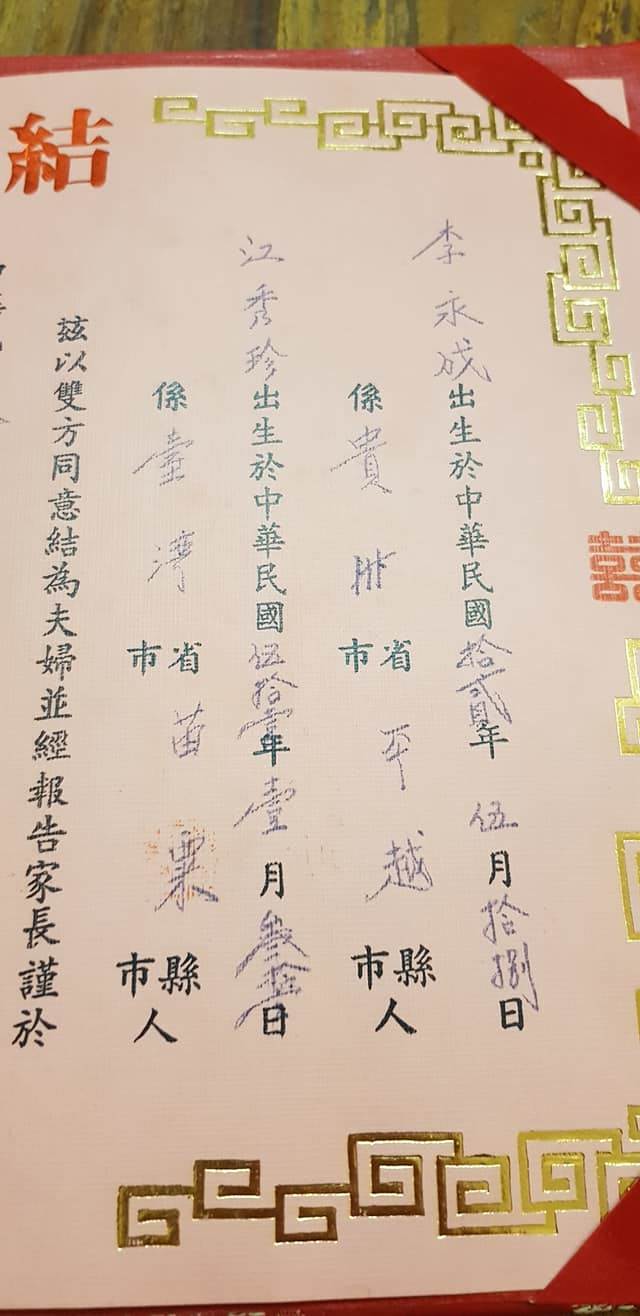 囍
結
李永成出生於中華民國拾貳年伍月拾捌日
係貴州省市平越縣市人
江秀珍出生於中華民國伍拾壹年壹月日
係臺灣省市苗栗縣市人
茲以雙方同意結為夫婦並經報告家長謹於